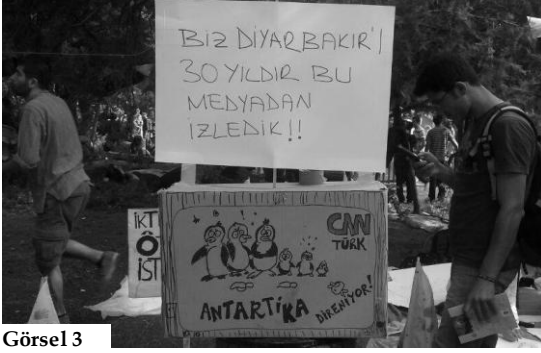 BİZ DİYARBAKIR'I
30 YILDIR BU
MEDYADAN
İZLEDİK!!
İKT
Ö
İST
CNN
TÜRK
ANTARTİKA
DİRENİYOR!
Görsel 3